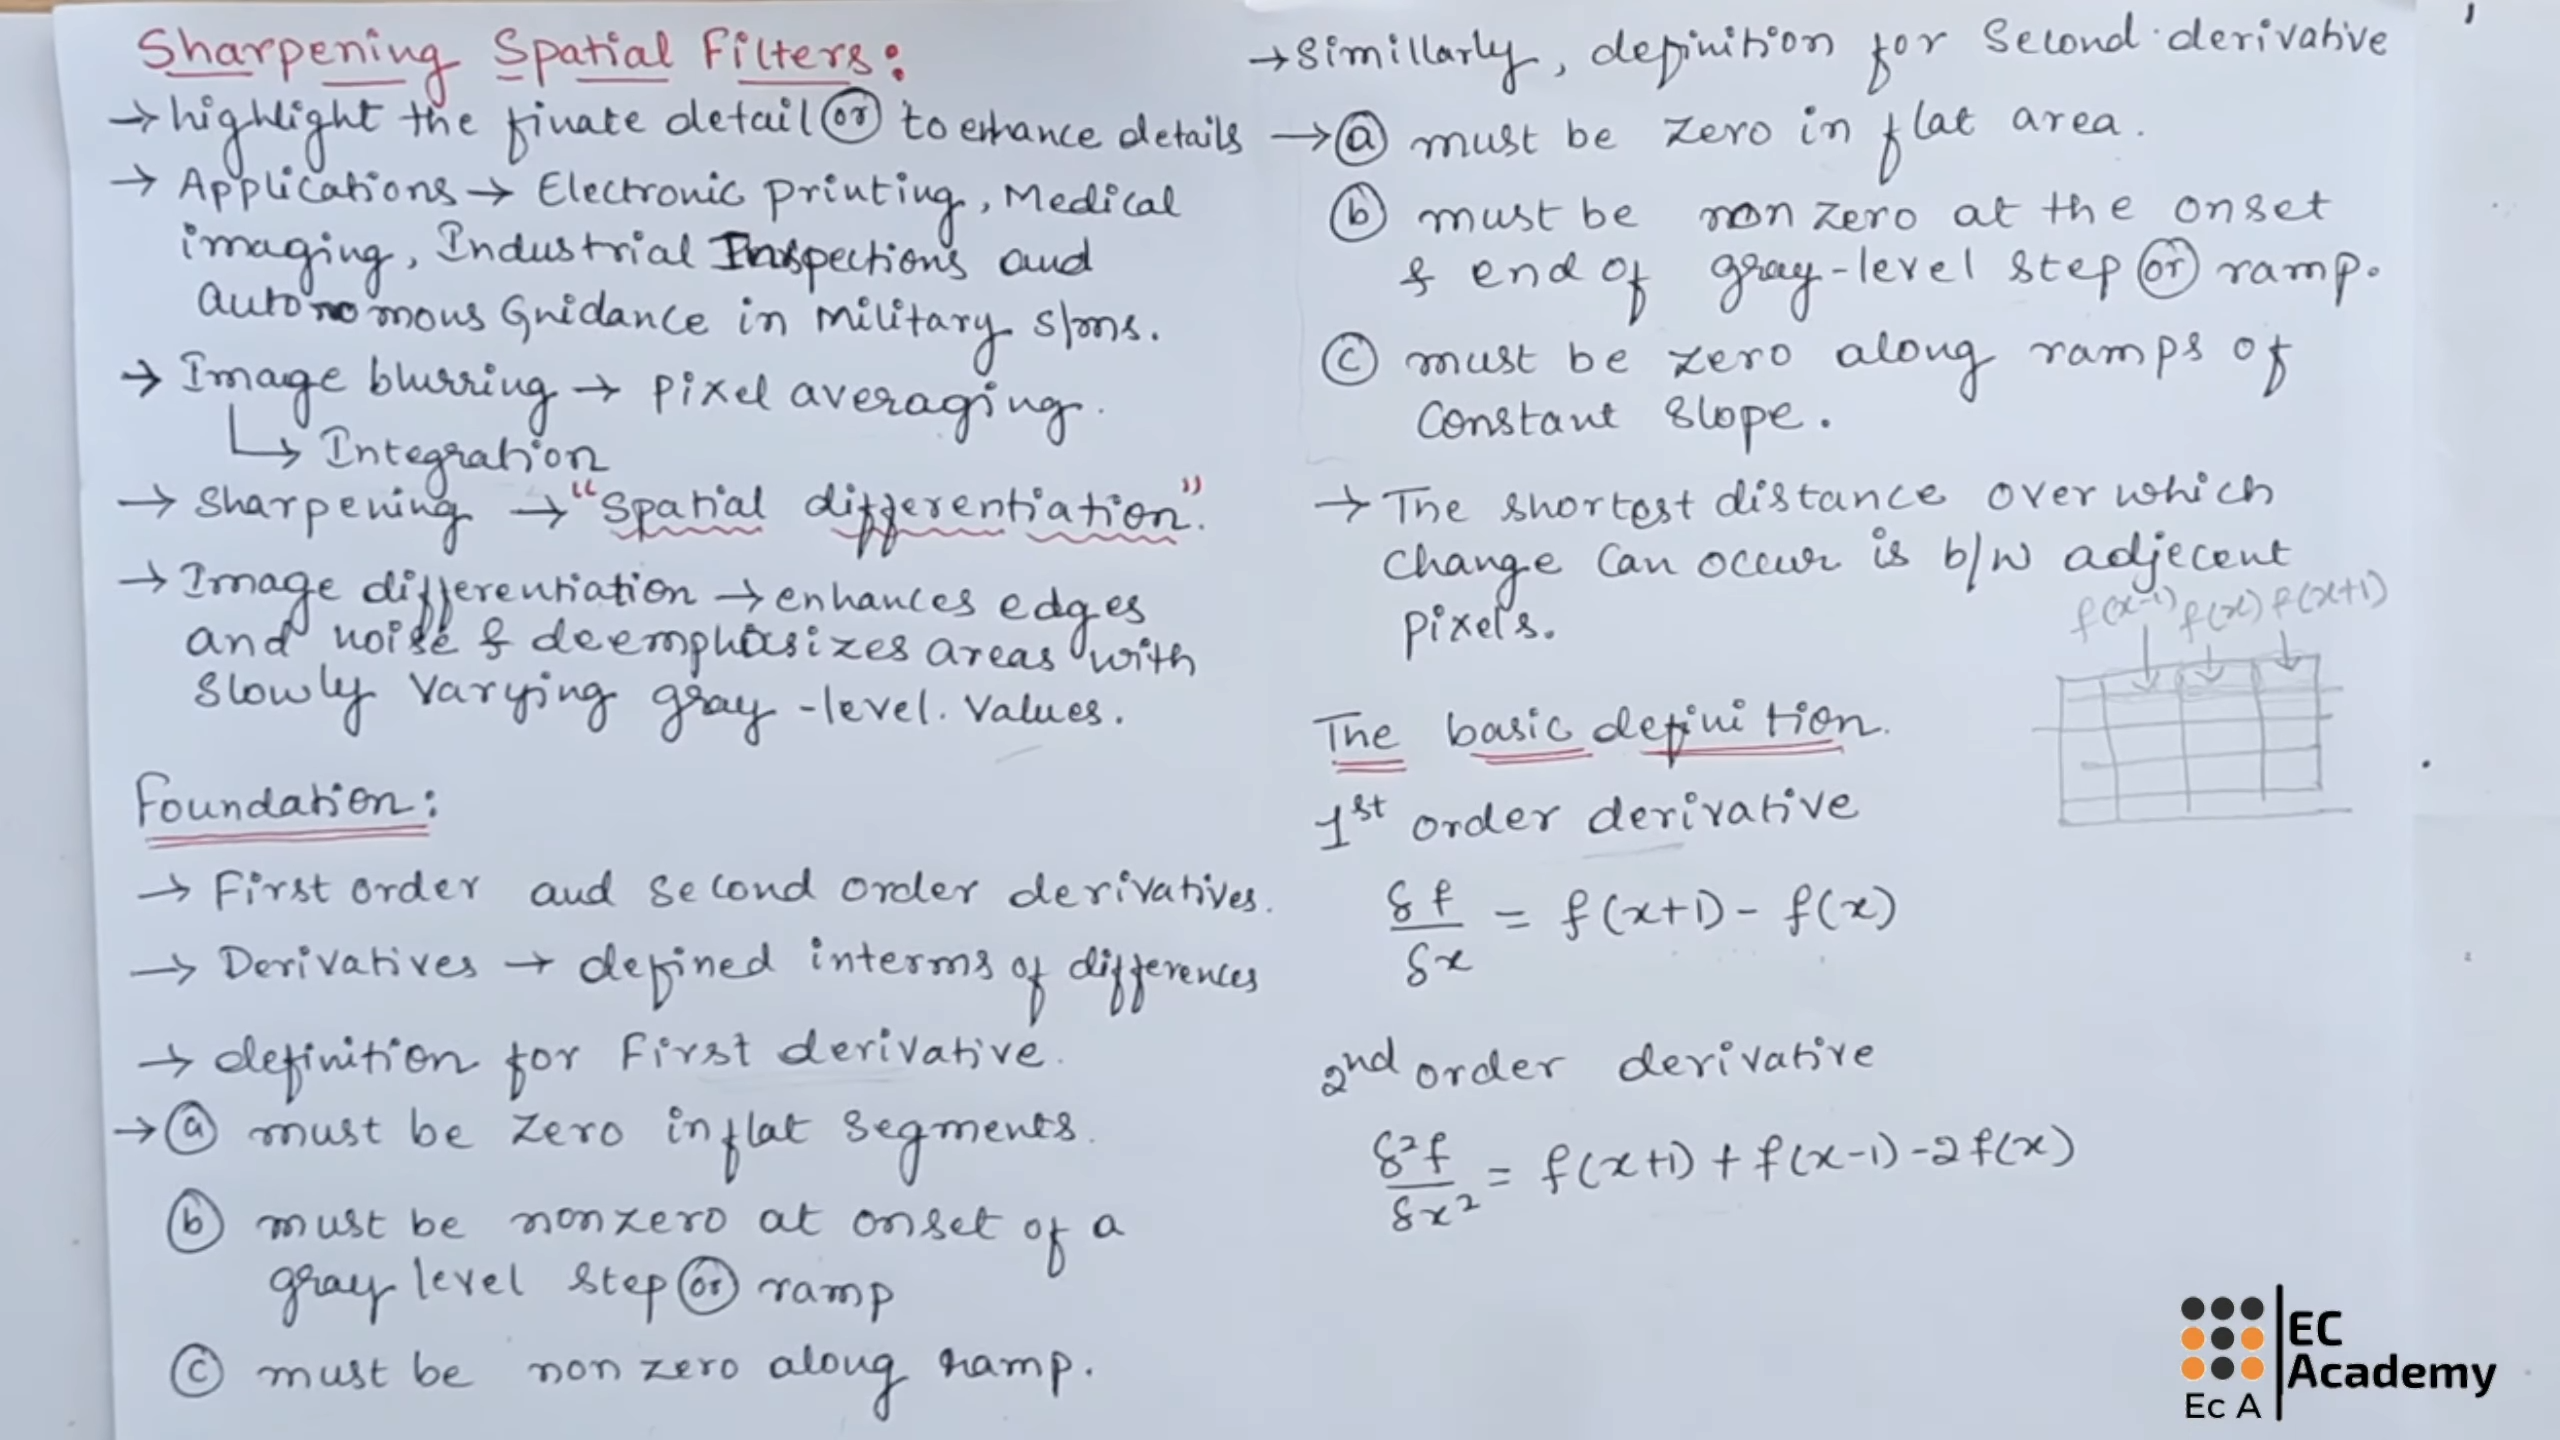 Sharpening Spatial Filters:
→ highlight the finate detail (or) to enhance details
→ Applications → Electronic printing, Medical
imaging, Industrial Inspections and
autonomous Guidance in military s/ms.
→ Image blurring → pixel averaging.
↳ Integration
→ Sharpening → "Spatial differentiation".
→ Image differentiation → enhances edges
and noise & deemphasizes areas with
slowly varying gray-level. Values.
Foundation:
→ First order and second order derivatives.
→ Derivatives → defined interms of differences
→ definition for First derivative.
→ (a) must be zero in flat segments.
(b) must be nonzero at onset of a
gray level step (or) ramp
(c) must be non zero along ramp.
→ Simillarly, definition for Second derivative
→ (a) must be zero in flat area.
(b) must be non zero at the onset
& end of gray-level step (or) ramp.
(c) must be zero along ramps of
Constant slope.
→ The shortest distance over which
change can occur is b/w adjecent
pixels.
f(x-1) f(x) f(x+1)
The basic definition.
1st order derivative
δf/δx = f(x+1) - f(x)
2nd order derivative
δ²f/δx² = f(x+1) + f(x-1) - 2f(x)
EC
Academy
Ec A